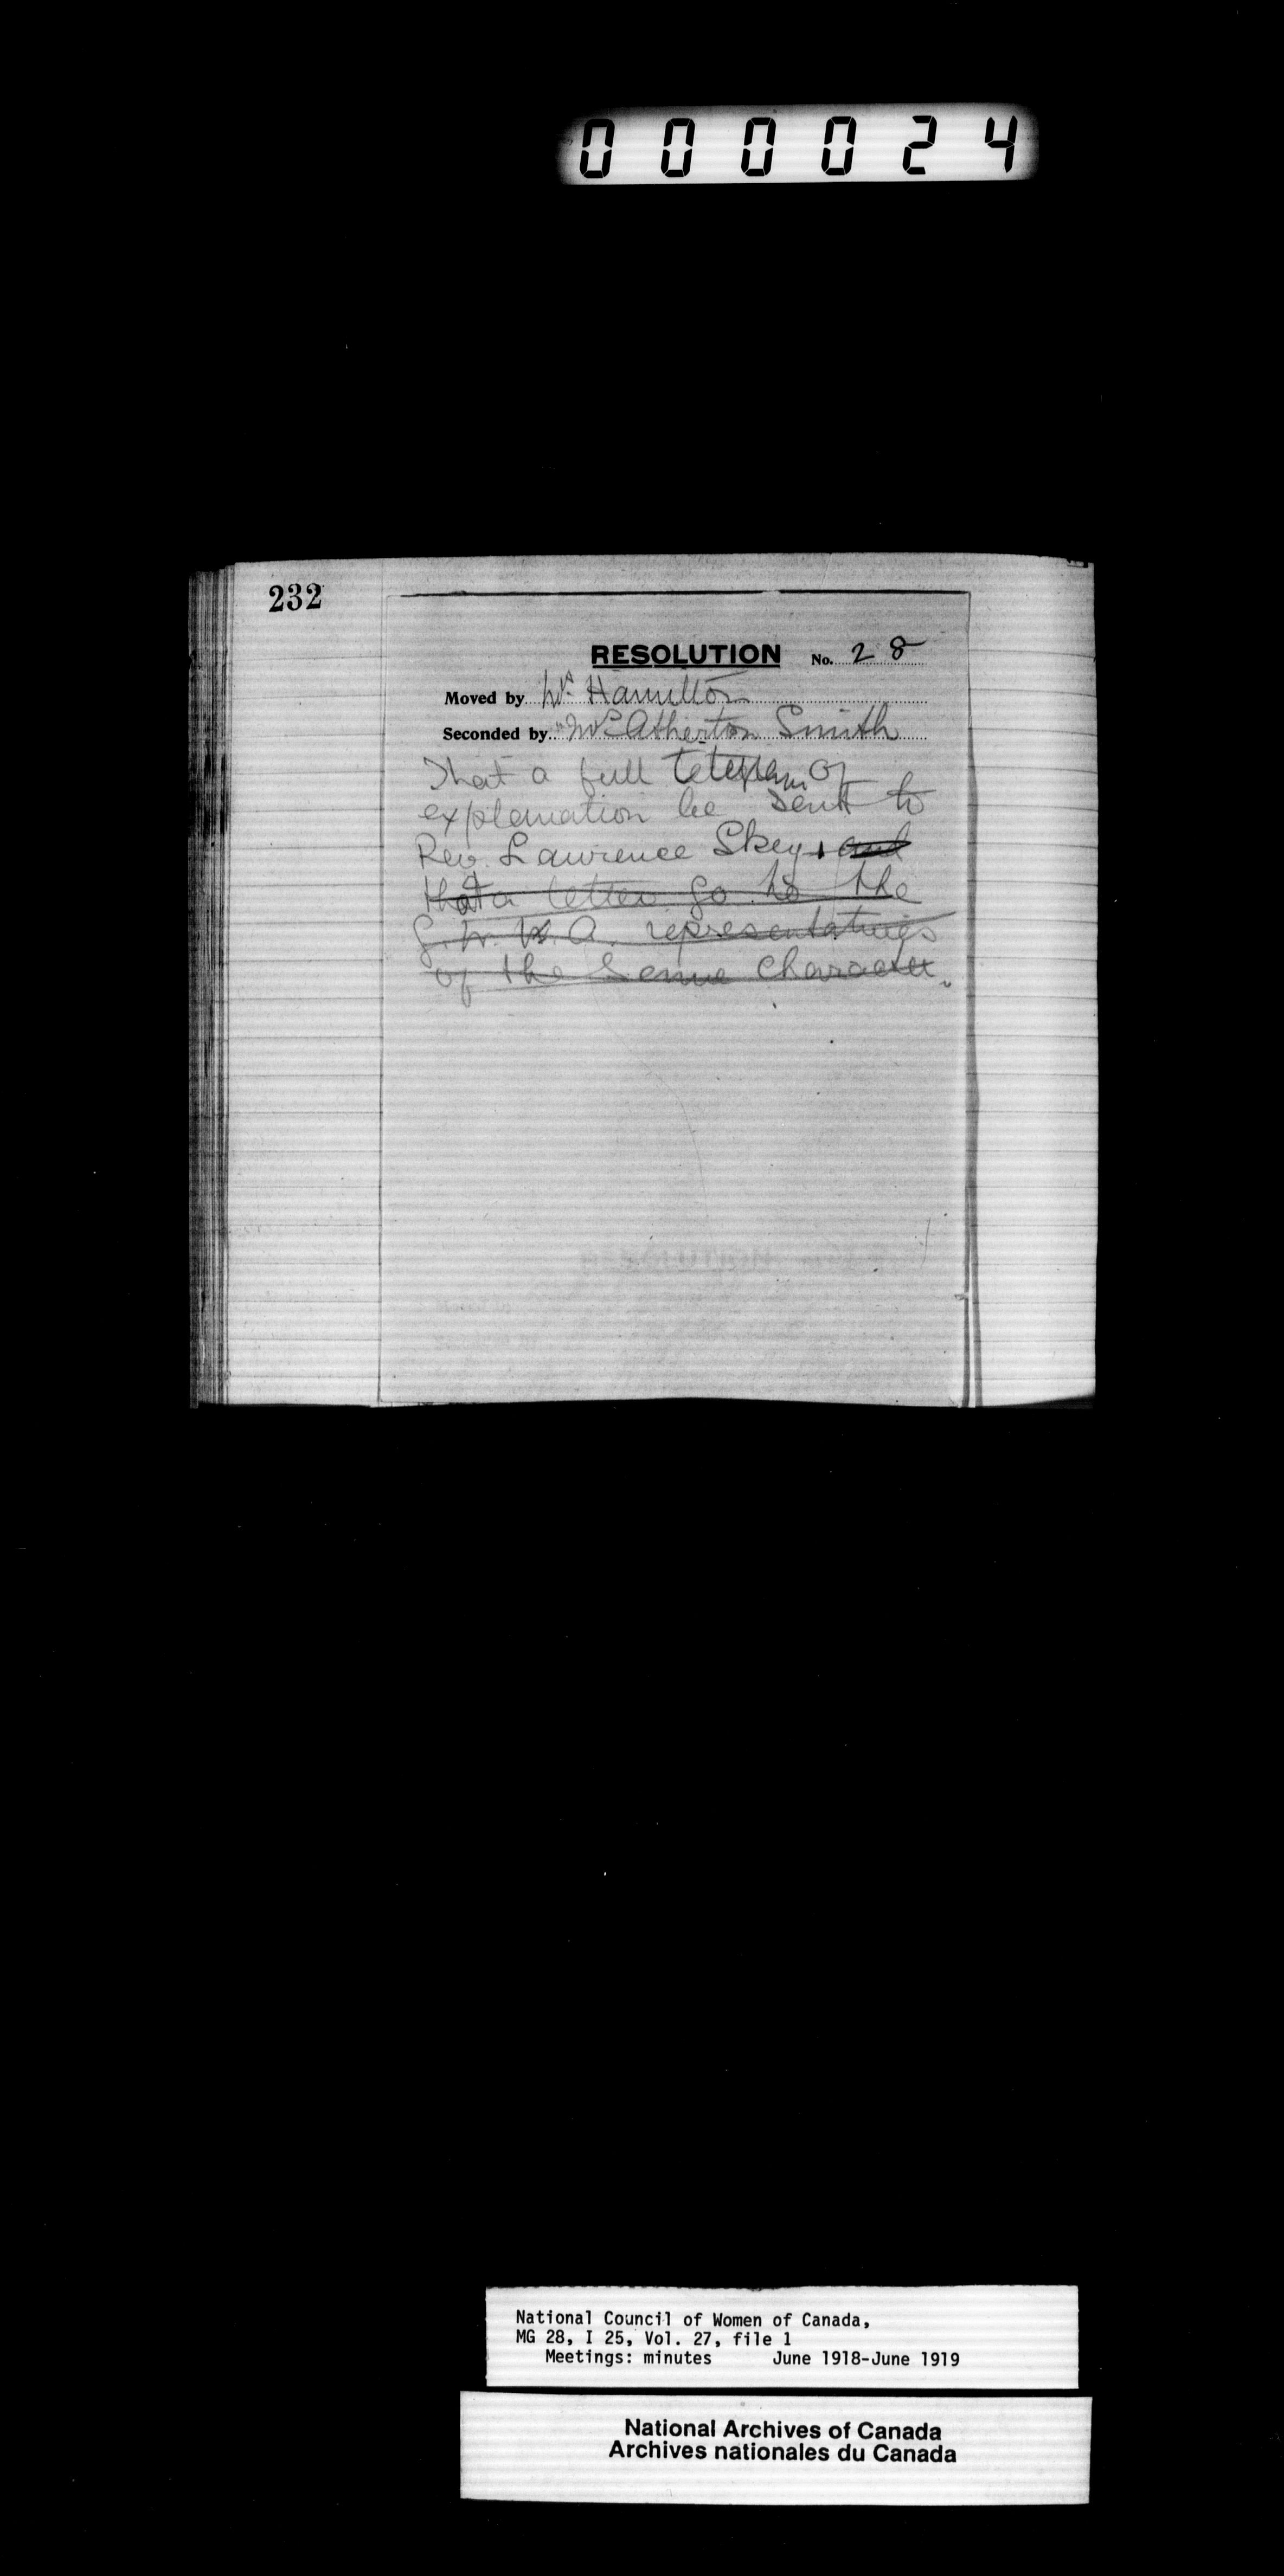 000024
232
RESOLUTION No. 28
Moved by Mrs. Hamilton
Seconded by "Mrs Atherton Smith
That a full telegram of
explanation be sent to
Rev. Lawrence Skey, and
that a letter go to the
G. W. V. A. representatives
of the same character.
RESOLUTION
Moved by
Seconded by
National Council of Women of Canada,
MG 28, I 25, Vol. 27, file 1
Meetings: minutes June 1918-June 1919
National Archives of Canada
Archives nationales du Canada